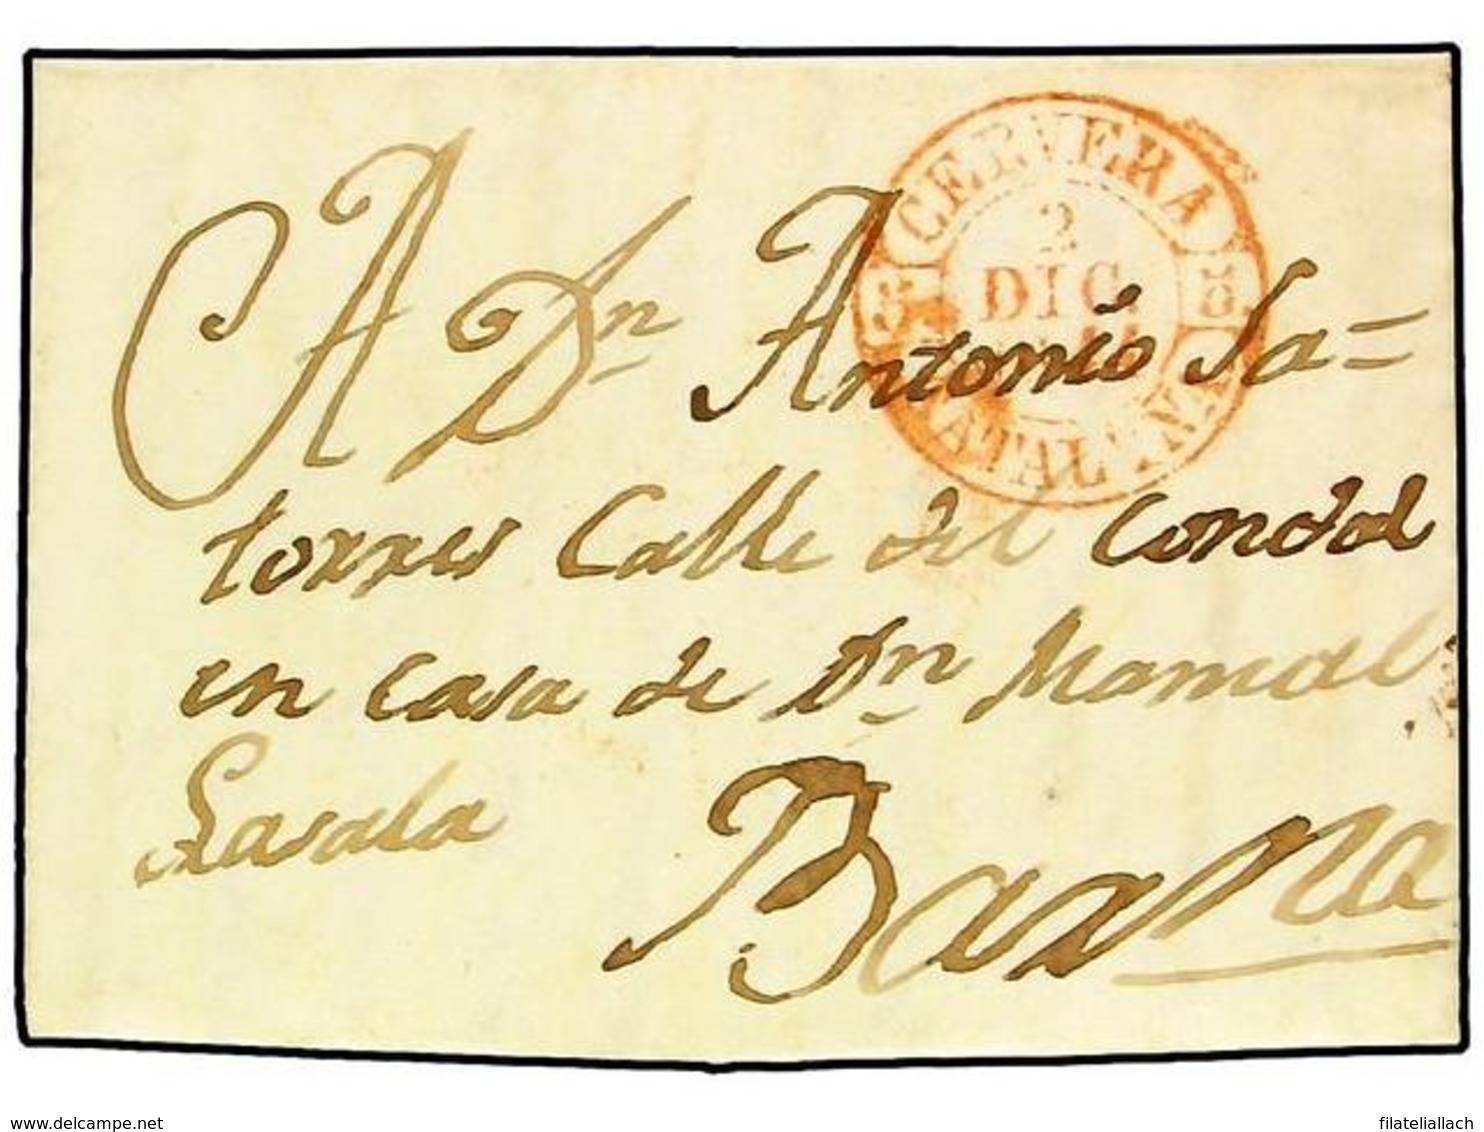 CERVERA
2
DIC.
CATALUNA
A Dn Antonio Sa=
torres Calle del Condal
en casa de Dn Manuel
Lasala
Barna
delcampe.net
filatelialllach